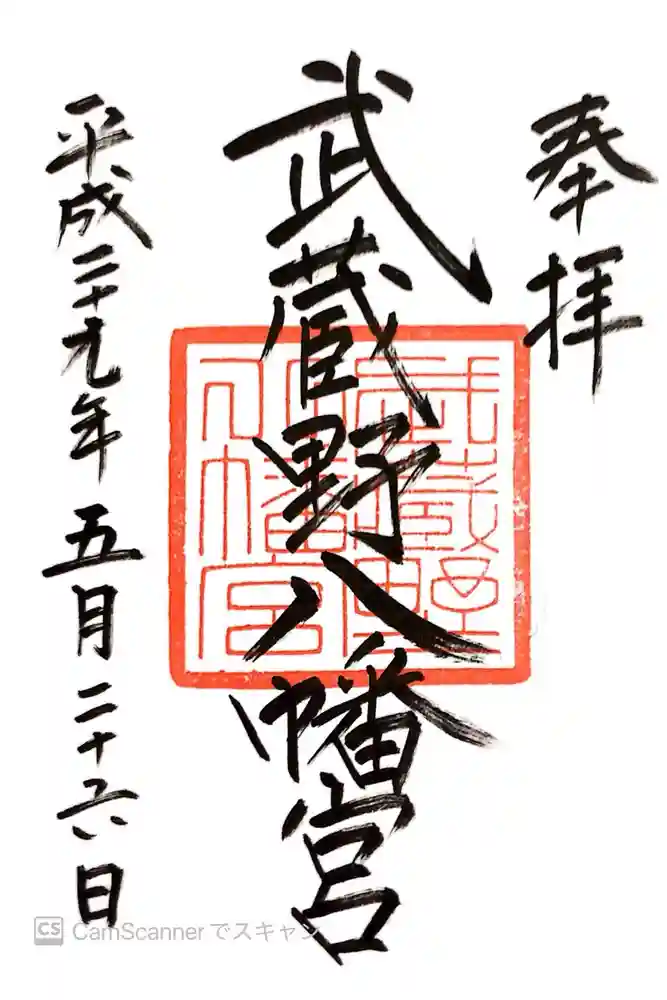 奉拝
武蔵野八幡宮
武蔵野八幡宮
平成二十九年五月二十六日
CS CamScannerでスキャン